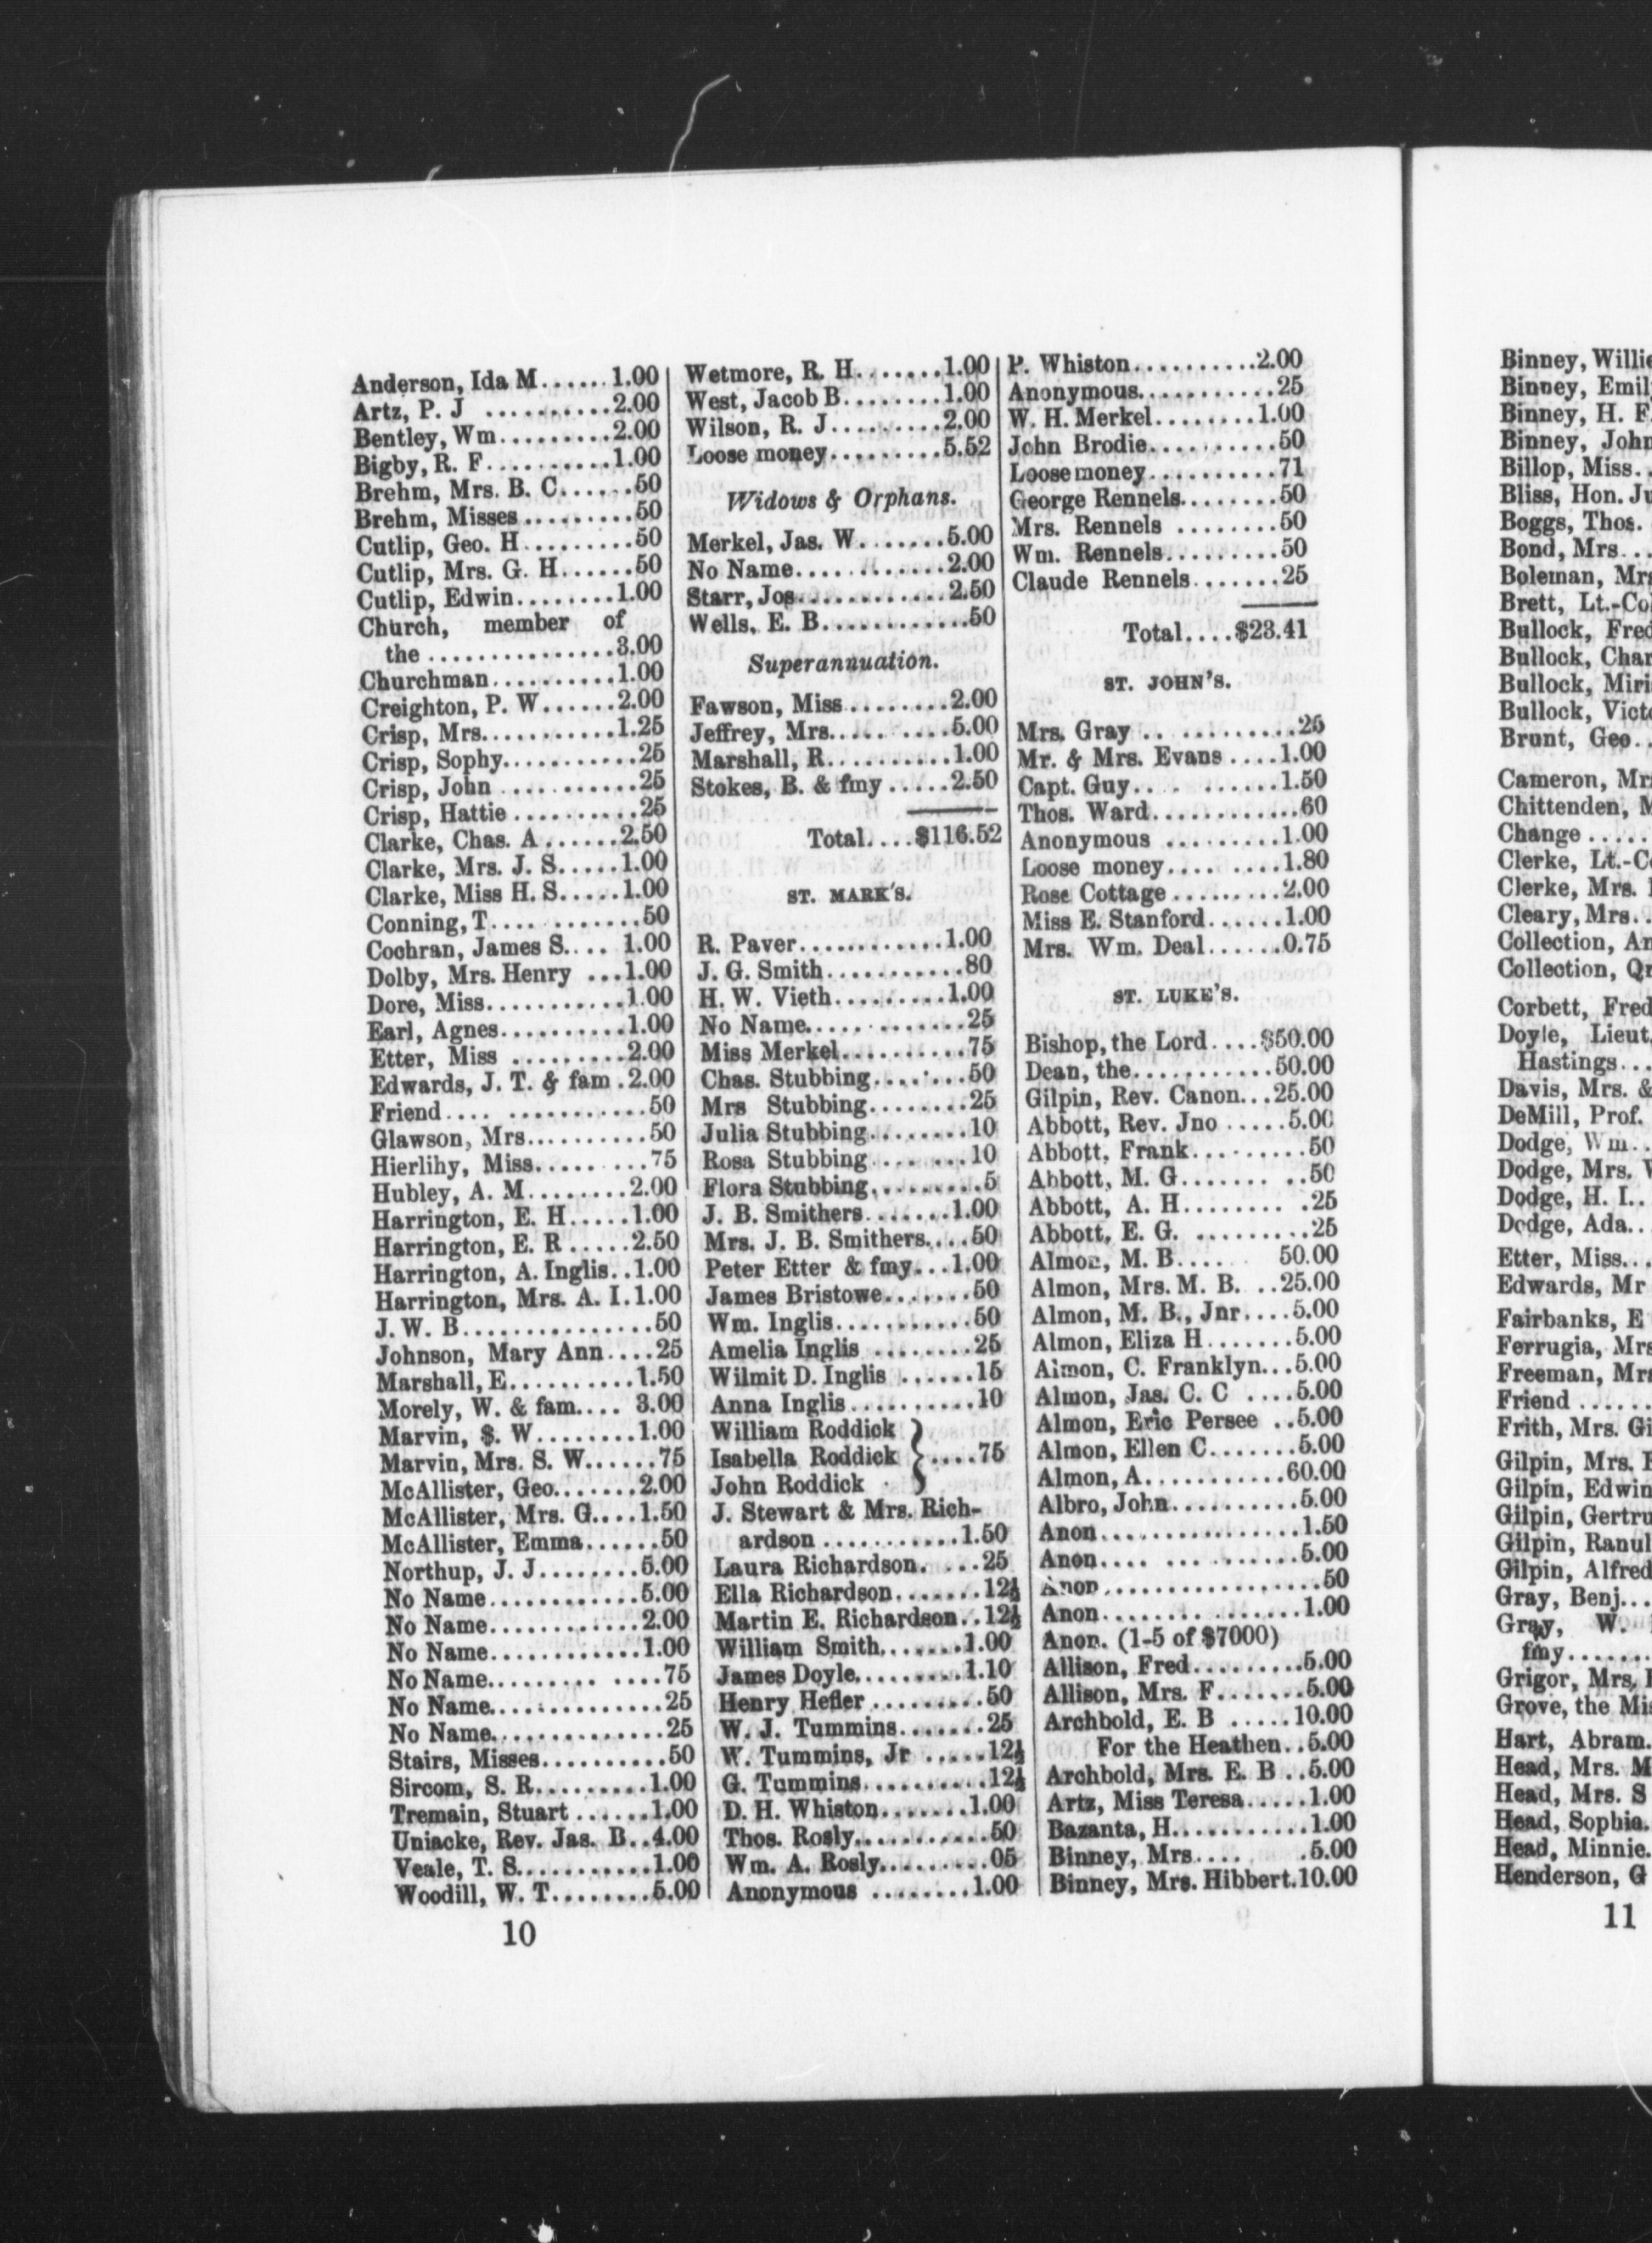 Anderson, Ida M......1.00
Artz, P. J ...........2.00
Bentley, Wm.........2.00
Bigby, R. F..........1.00
Brehm, Mrs. B. C......50
Brehm, Misses.........50
Cutlip, Geo. H.........50
Cutlip, Mrs. G. H......50
Cutlip, Edwin........1.00
Church, member of
the ...............3.00
Churchman..........1.00
Creighton, P. W......2.00
Crisp, Mrs...........1.25
Crisp, Sophy...........25
Crisp, John ...........25
Crisp, Hattie ..........25
Clarke, Chas. A......2.50
Clarke, Mrs. J. S.....1.00
Clarke, Miss H. S.....1.00
Conning, T.............50
Cochran, James S.... 1.00
Dolby, Mrs. Henry ...1.00
Dore, Miss...........1.00
Earl, Agnes..........1.00
Etter, Miss .........2.00
Edwards, J. T. & fam .2.00
Friend.... ............50
Glawson, Mrs..........50
Hierlihy, Miss.........75
Hubley, A. M........2.00
Harrington, E. H.....1.00
Harrington, E. R .....2.50
Harrington, A. Inglis..1.00
Harrington, Mrs. A. I.1.00
J. W. B................50
Johnson, Mary Ann....25
Marshall, E..........1.50
Morely, W. & fam.... 3.00
Marvin, S. W........1.00
Marvin, Mrs. S. W......75
McAllister, Geo.......2.00
McAllister, Mrs. G....1.50
McAllister, Emma......50
Northup, J. J........5.00
No Name............5.00
No Name............2.00
No Name............1.00
No Name......... ....75
No Name..............25
No Name..............25
Stairs, Misses..........50
Sircom, S. R.........1.00
Tremain, Stuart ......1.00
Uniacke, Rev. Jas. B..4.00
Veale, T. S...........1.00
Woodill, W. T........5.00
10
Wetmore, R. H.......1.00
West, Jacob B........1.00
Wilson, R. J.........2.00
Loose money.........5.52
Widows & Orphans.
Merkel, Jas. W.......5.00
No Name............2.00
Starr, Jos............2.50
Wells, E. B............50
Superannuation.
Fawson, Miss........2.00
Jeffrey, Mrs..........5.00
Marshall, R..........1.00
Stokes, B. & fmy .....2.50
Total....$116.52
ST. MARK'S.
R. Paver............1.00
J. G. Smith...........80
H. W. Vieth.........1.00
No Name.............25
Miss Merkel..........75
Chas. Stubbing........50
Mrs Stubbing........25
Julia Stubbing........10
Rosa Stubbing........10
Flora Stubbing.........5
J. B. Smithers.......1.00
Mrs. J. B. Smithers....50
Peter Etter & fmy...1.00
James Bristowe.......50
Wm. Inglis...........50
Amelia Inglis ........25
Wilmit D. Inglis ......15
Anna Inglis..........10
William Roddick
Isabella Roddick } ....75
John Roddick
J. Stewart & Mrs. Rich-
ardson ...........1.50
Laura Richardson. ...25
Ella Richardson.......12½
Martin E. Richardson..12½
William Smith.......1.00
James Doyle.........1.10
Henry Hefler .........50
W. J. Tummins.......25
W. Tummins, Jr .....12½
G. Tummins..........12½
D. H. Whiston.......1.00
Thos. Rosly...........50
Wm. A. Rosly.........05
Anonymous ........1.00
P. Whiston..........2.00
Anonymous...........25
W. H. Merkel........1.00
John Brodie..........50
Loose money..........71
George Rennels........50
Mrs. Rennels ........50
Wm. Rennels.........50
Claude Rennels.......25
Total....$23.41
ST. JOHN'S.
Mrs. Gray .. ..........25
Mr. & Mrs. Evans ....1.00
Capt. Guy.... ......1.50
Thos. Ward............60
Anonymous .........1.00
Loose money.... .....1.80
Rose Cottage .........2.00
Miss E. Stanford......1.00
Mrs. Wm. Deal......0.75
ST. LUKE'S.
Bishop, the Lord....$50.00
Dean, the...........50.00
Gilpin, Rev. Canon...25.00
Abbott, Rev. Jno .....5.00
Abbott, Frank.........50
Abbott, M. G....... ..50
Abbott, A. H........ .25
Abbott, E. G. .........25
Almon, M. B.... 50.00
Almon, Mrs. M. B. ..25.00
Almon, M. B., Jnr....5.00
Almon, Eliza H.......5.00
Almon, C. Franklyn...5.00
Almon, Jas. C. C ....5.00
Almon, Eric Persee ..5.00
Almon, Ellen C.......5.00
Almon, A...........60.00
Albro, John..........5.00
Anon................1.50
Anon.... ... .......5.00
Anon..................50
Anon........ .......1.00
Anon. (1-5 of $7000)
Allison, Fred.........5.00
Allison, Mrs. F.......5.00
Archbold, E. B .....10.00
For the Heathen..5.00
Archbold, Mrs. E. B ..5.00
Artz, Miss Teresa.....1.00
Bazanta, H...........1.00
Binney, Mrs.... .5.00
Binney, Mrs. Hibbert.10.00
Binney, Willie
Binney, Emil
Binney, H. F
Binney, John
Billop, Miss..
Bliss, Hon. Ju
Boggs, Thos.
Bond, Mrs...
Boleman, Mrs
Brett, Lt.-Co
Bullock, Fred
Bullock, Char
Bullock, Miri
Bullock, Victo
Brunt, Geo..
Cameron, Mr
Chittenden, M
Change .....
Clerke, Lt.-C
Clerke, Mrs.
Cleary, Mrs..
Collection, An
Collection, Qr
Corbett, Fred
Doyle, Lieut.
Hastings...
Davis, Mrs. &
DeMill, Prof.
Dodge, Wm..
Dodge, Mrs. W
Dodge, H. I..
Dodge, Ada..
Etter, Miss...
Edwards, Mr
Fairbanks, E
Ferrugia, Mrs
Freeman, Mrs
Friend ......
Frith, Mrs. Gi
Gilpin, Mrs. E
Gilpin, Edwin
Gilpin, Gertru
Gilpin, Ranul
Gilpin, Alfred
Gray, Benj...
Gray, W.
fmy.......
Grigor, Mrs.
Grove, the Mis
Hart, Abram.
Head, Mrs. M
Head, Mrs. S
Head, Sophia.
Head, Minnie.
Henderson, G
11